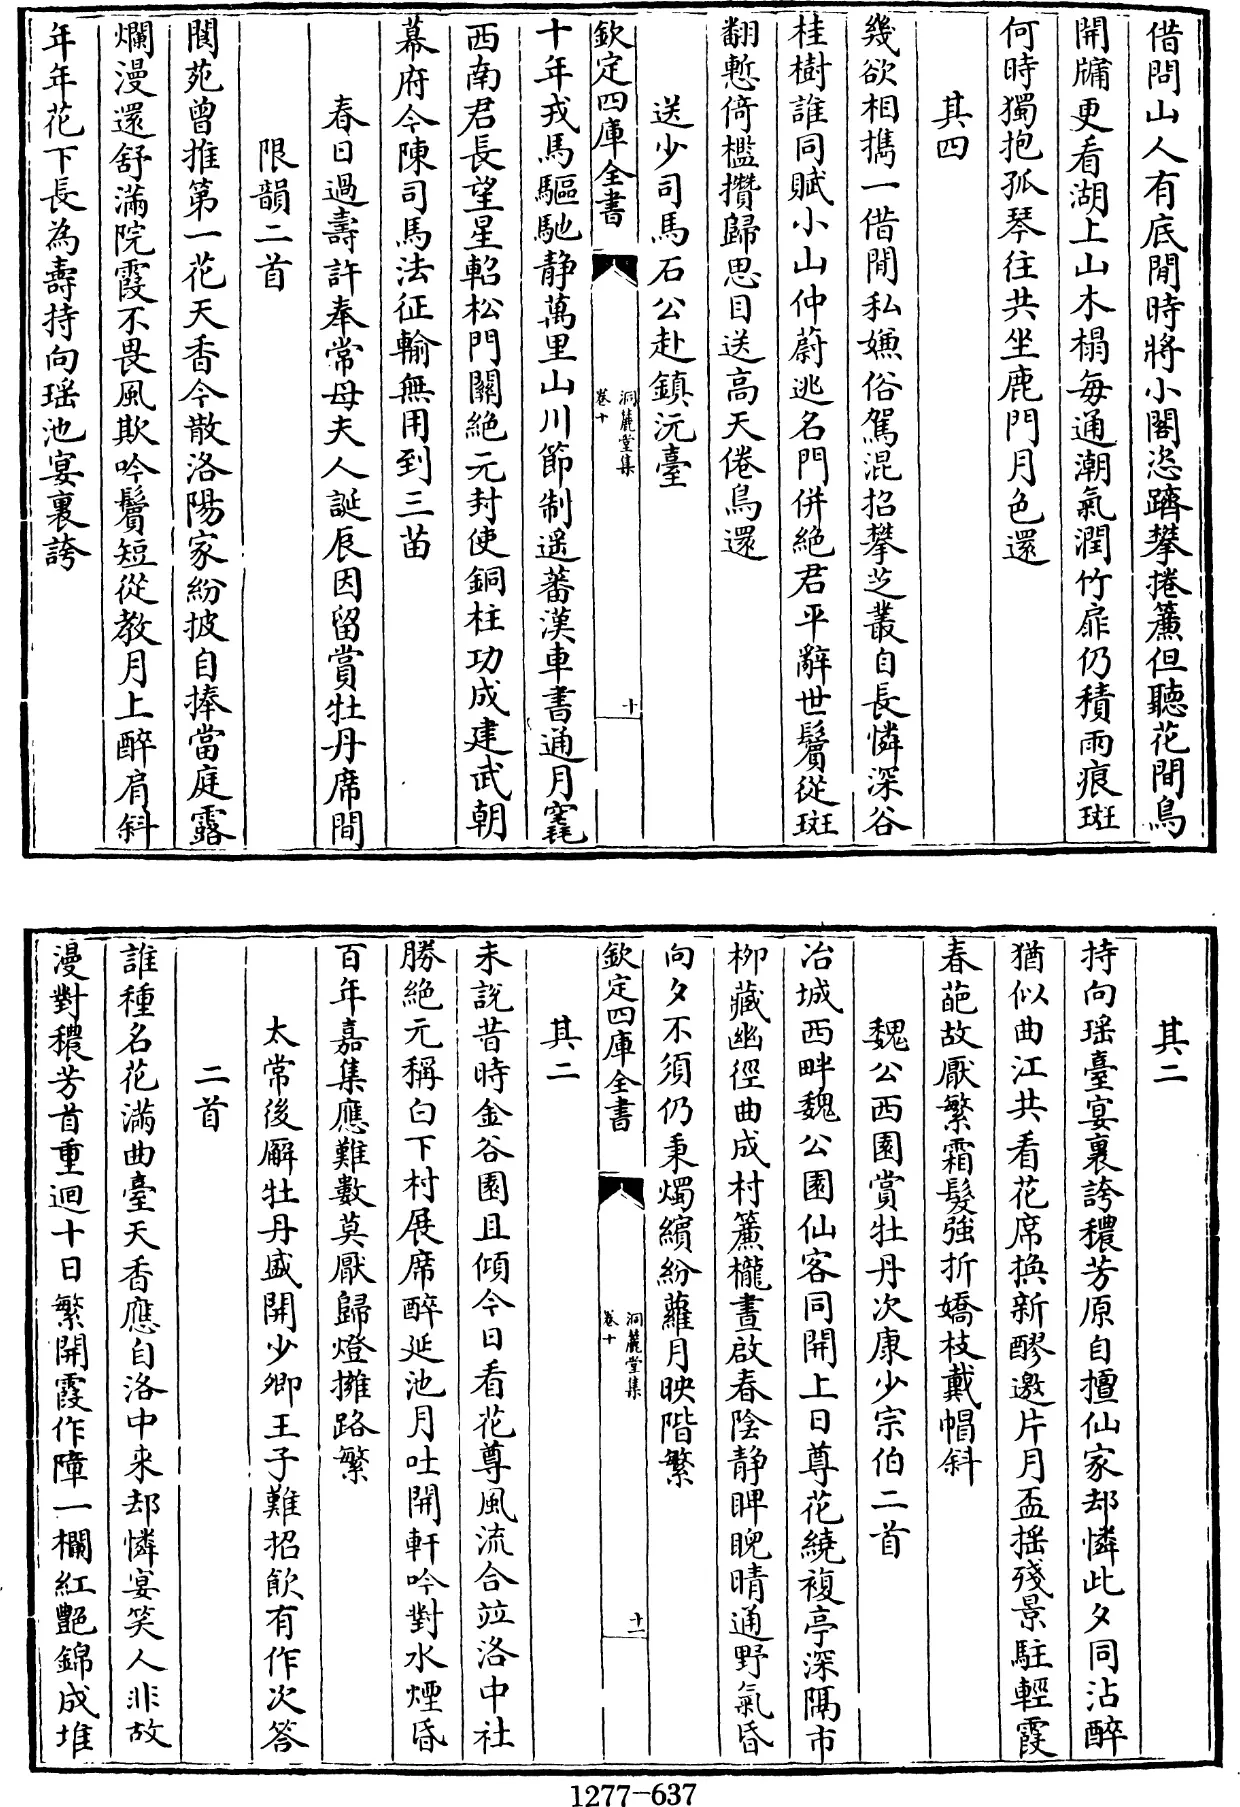 借問山人有底閒時將小閣恣躋攀捲簾但聽花間鳥
開牗更看湖上山木榻每通潮氣潤竹扉仍積雨痕斑
何時獨抱孤琴往共坐鹿門月色還
其四
幾欲相攜一借閒私嫌俗駕混招攀芝叢自長憐深谷
桂樹誰同賦小山仲蔚逃名門併絶君平辭世鬢從斑
翻慙倚檻攢歸思目送高天倦鳥還
送少司馬石公赴鎮沅臺
欽定四庫全書
洞麓堂集
卷十
十
十年戎馬驅馳静萬里山川節制遥蕃漢車書通月竁
西南君長望星軺松門關絶元封使銅柱功成建武朝
幕府今陳司馬法征輸無用到三苗
春日過壽許奉常母夫人誕辰因留賞牡丹席間
限韻二首
閬苑曾推第一花天香今散洛陽家紛披自捧當庭露
爛漫還舒滿院霞不畏風欺吟鬢短從教月上醉肩斜
年年花下長為壽持向瑶池宴裏誇
其二
持向瑶臺宴裏誇穠芳原自擅仙家却憐此夕同沾醉
猶似曲江共看花席換新醪邀片月盃揺殘景駐輕霞
春葩故厭繁霜髮強折嬌枝戴帽斜
魏公西園賞牡丹次康少宗伯二首
冶城西畔魏公園仙客同開上日尊花繞複亭深隔市
柳藏幽徑曲成村簾櫳晝啟春陰静睥睨晴通野氣昏
向夕不須仍秉燭繽紛蘿月映階繁
欽定四庫全書
洞麓堂集
卷十
十一
其二
未說昔時金谷園且傾今日看花尊風流合竝洛中社
勝絶元稱白下村展席醉延池月吐開軒吟對水煙昏
百年嘉集應難數莫厭歸燈擁路繁
太常後廨牡丹盛開少卿王子難招飲有作次答
二首
誰種名花滿曲臺天香應自洛中来却憐宴笑人非故
漫對穠芳首重迴十日繁開霞作障一欄紅艶錦成堆
1277-637